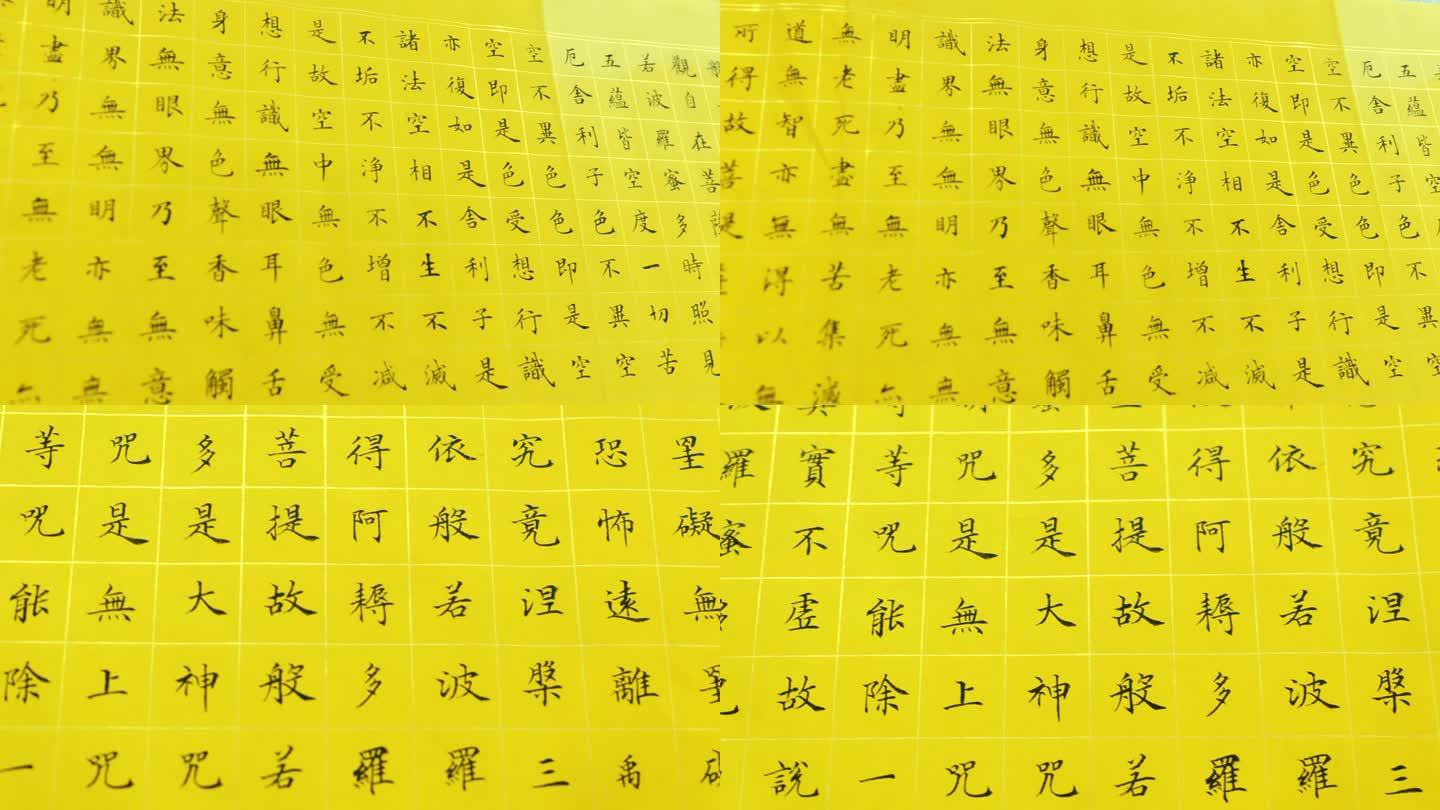 觀自在菩
若波羅蜜多時照見
五蘊皆空度一切苦
厄舍利子色不異空
空不異色色即是空
空即是色受想行識
亦復如是舍利子是
諸法空相不生不滅
不垢不淨不增不減
是故空中無色無受
想行識無眼耳鼻舌
身意無色聲香味觸
法無眼界乃至無意
識界無無明亦無無
明盡乃至無老死無
五蘊皆空
厄舍利子色不異空
空不異色色即是空
空即是色受想行識
亦復如是舍利子是
諸法空相不生不滅
不垢不淨不增不減
是故空中無色無受
想行識無眼耳鼻舌
身意無色聲香味觸
法無眼界乃至無意
識界無無明亦無無
明盡乃至無老死無
無老死盡無苦集滅
道無智亦無得以無
所得故菩
罣礙無
恐怖遠離
究竟涅槃三
依般若波羅
得阿耨多羅
菩提故般若
多是大神咒
咒是無上咒
等咒能除一
究竟涅槃三
依般若波羅
得阿耨多羅
菩提故般若
多是大神咒
咒是無上咒
等咒能除一
實不虛故說
羅蜜